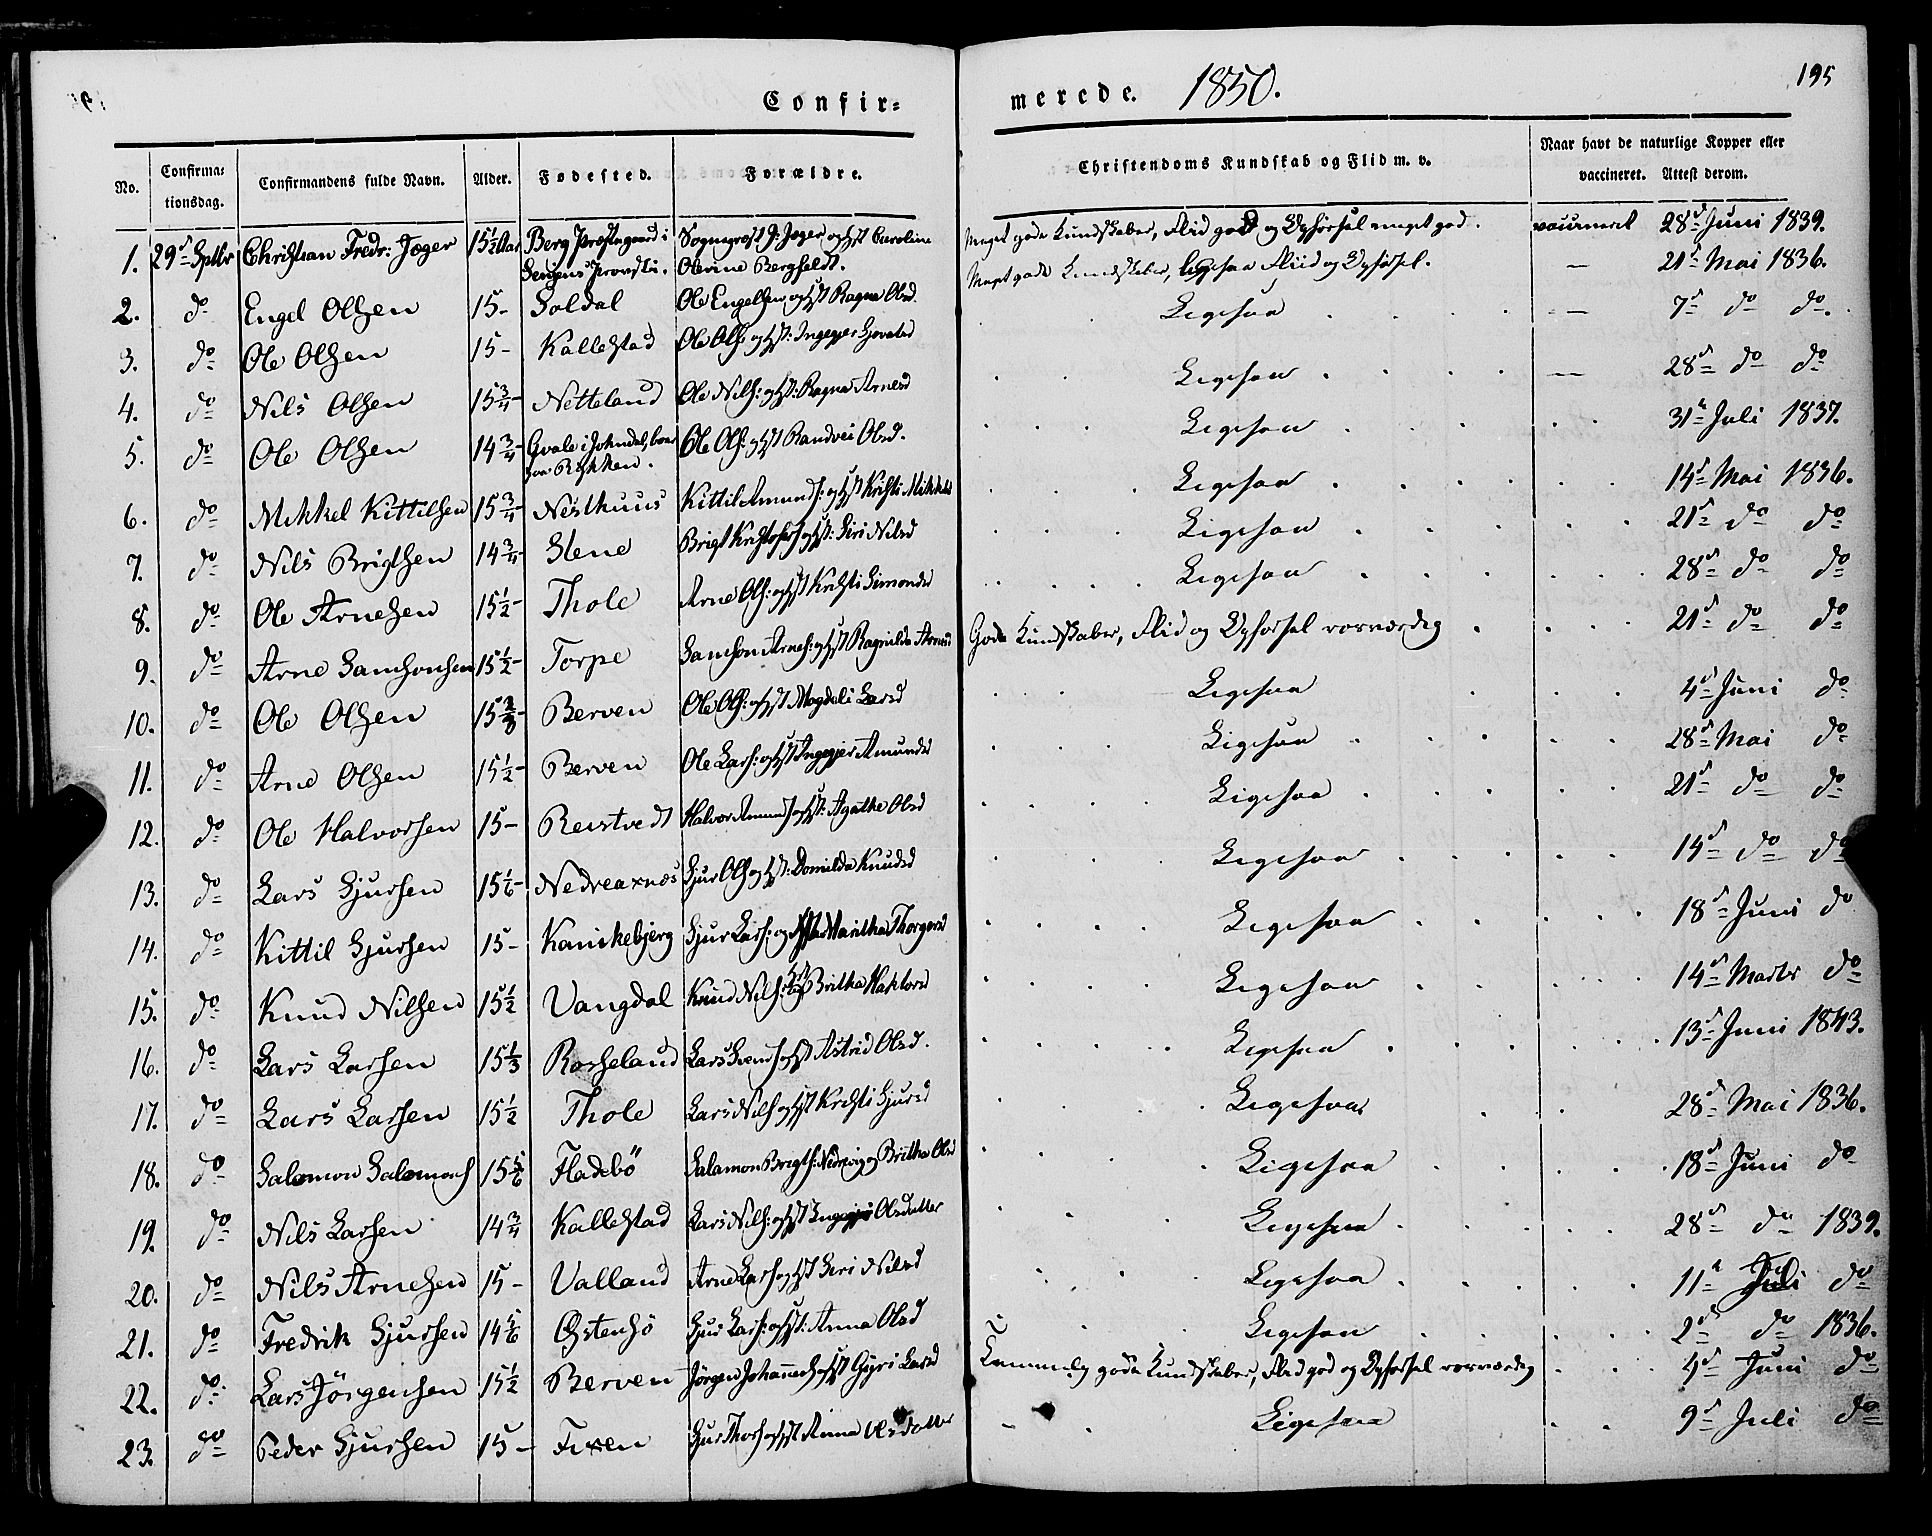 Confir=
merede. 1850.
195
No.
Confirma=
tionsdag.
Confirmandens fulde Navn.
Alder.
Fødested.
Forældre.
Christendoms Kundskab og Flid m. v.
Naar havt de naturlige Kopper eller
vaccineret. Attest derom.
1. 29d Sptbr Christian Fredr: Jæger 15½ Aar Berg Præstegaard i Sogneprest J: Jæger og Hst Caroline Meget gode Kundskaber, Flid god og Opførsel meget god. vaccineret 28d Juni 1839.
Olivine Bergfeldt.
2. do Engel Olsen 15- Soldal Ole Engelsen og Hst Ragna Olsd. Meget gode Kundskaber, ligesaa Fliid og Opførsel. — 21d Mai 1836.
3. do Ole Olsen 15- Kallestad Ole Ols: og Hst: Ingegjer Ligesaa — 7d do do
4. do Nils Olsen 15¾- Netteland Ole Nils: og Hst: Ragna Arnesd Ligesaa — 28d do do
5. do Ole Olsen 14¾- Qvale i Johndal, boer Ole Ols: og Hst Randvei Olsd. Ligesaa 31te Juli 1837.
hos Rykken.
6. do Mikkel Kittilsen 15¾- Nesthuus Kittil Amunds: og Hst Kristi Mikkelsd Ligesaa 14d Mai 1836.
7. do Nils Brigtsen 14¾- Stene Brigt Kristofers og Hst: Siri Nilsd Ligesaa 21d do do
8. do Ole Arnesen 15½- Thole Arne Ols: og Hst Kristi Simonsd Ligesaa 28d do do
9. do Arne Samsonsen 15½- Torpe Samson Arnes: og Hst Ragnilda Arnesd Gode Kundskaber, Flid og Opførsel rosværdig 21d do do
10. do Ole Olsen 15⅔- Berven Ole Ols: og Hst Magdeli Larsd Ligesaa 4d Juni do
11. do Arne Olsen 15½- Berven Ole Lars: og Hst Ingegjer Amundsd Ligesaa 28d Mai do
12. do Ole Halvorsen 15- Reistvedt Halvor Amunds og Hst: Agatha Olsd Ligesaa 21d do do
13. do Lars Sjursen 15⅙- Nedreaxnes Sjur Ols og Hst: Domilda Knudsd Ligesaa 14d do do
14. do Kittil Sjursen 15- Kanikebjerg Sjur Lars: og Hst Maritha Thorgersd Ligesaa 18d Juni do
15. do Knud Nilsen 15½ Vangdal Knud Nils: og Hst Britha Haktorsd Ligesaa 14d Marts do
16. do Lars Larsen 15⅓ Rosseland Lars Svends og Hst Astrid Olsd. Ligesaa 13d Juni 1843.
17. do Lars Larsen 15½ Thole Lars Nils og Hst Kristi Sjursd Ligesaa 28d Mai 1836.
18. do Salomon Salomons 15⅚ Fladebö Salamon Brigts: Nedrevig og Britha Olsd Ligesaa 18d Juni do
19. do Nils Larsen 14¾ Kallestad Lars Nils: og Hst Olsdatter Ligesaa 28d do 1839.
20. do Nils Arnesen 15- Valland Arne Lars og Hst Siri Nilsd Ligesaa 11te Juli do
21. do Fredrik Sjursen 14⅚ Østensö Sjur Lars: og Hst: Anna Olsd Ligesaa 2d do 1836.
22. do Lars Jörgensen 15½ Berven Jörgen Johannes og Hst Gyri Larsd Temmelig gode Kundskaber, Flid god og Opførsel rosværdig 4d Juni do
23. do Peder Sjursen 15- Fixen Sjur Thors og Hst Anna Olsdatter Ligesaa 9d Juli do